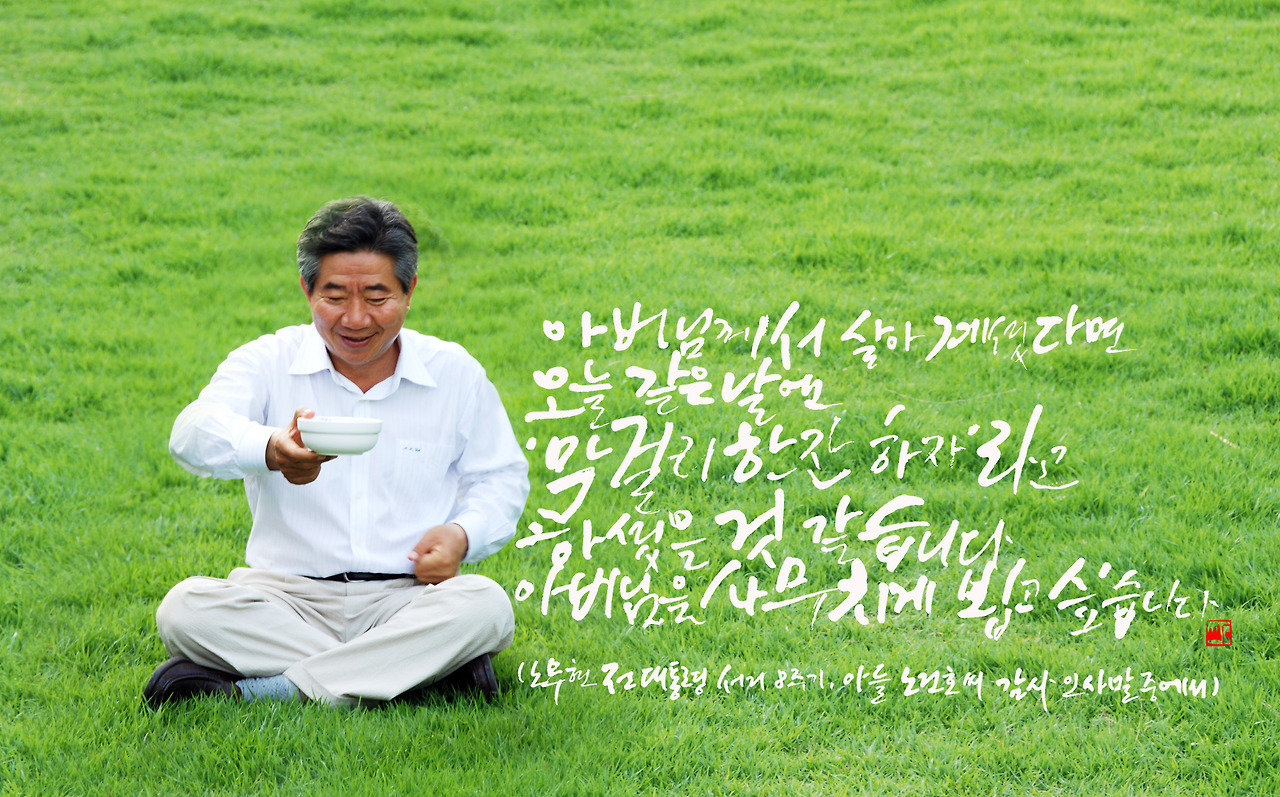 아버님께서 살아 계셨다면
오늘 같은 날엔
'막걸리 한잔 하자'라고
하셨을 것 같습니다.
아버님을 사무치게 뵙고 싶습니다.
(노무현 전 대통령 서거 8주기, 아들 노건호씨 감사 인사말 중에서)